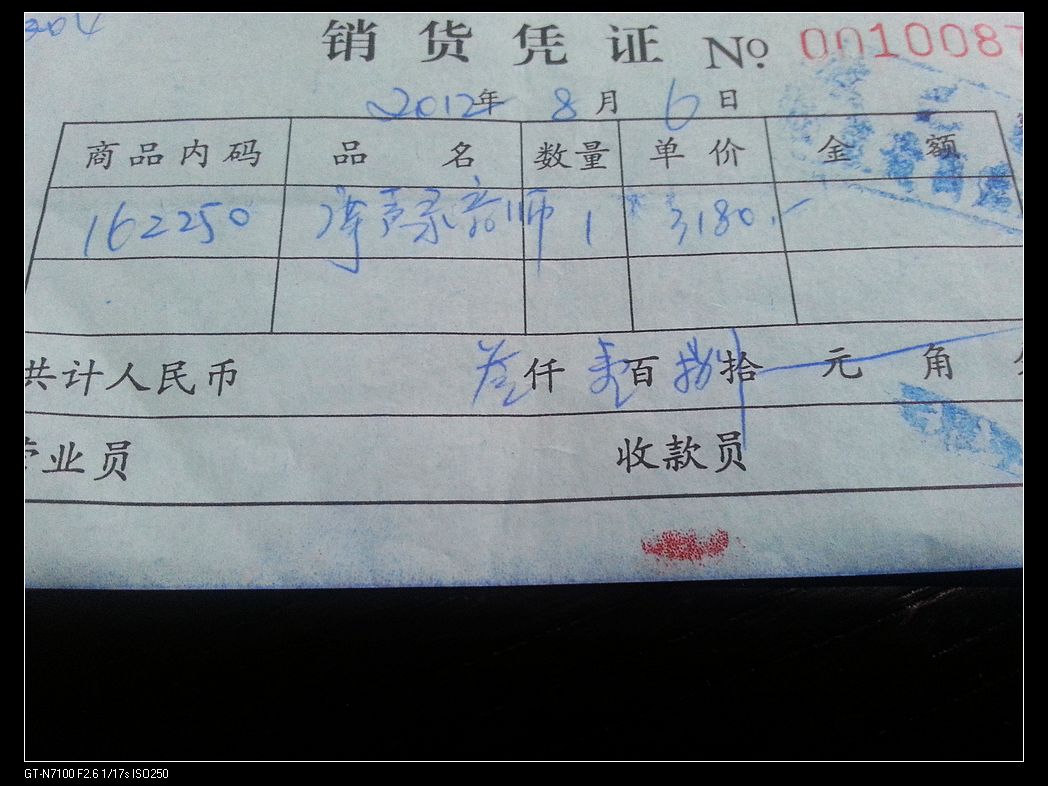 304
销货凭证 No. 0010087
2012年 8月 6日
商品内码 品名 数量 单价 金额
162250 录音师 1 3,180.-
共计人民币 叁仟壹百捌拾 元 角
业员 收款员
GT-N7100 F2.6 1/17s ISO250